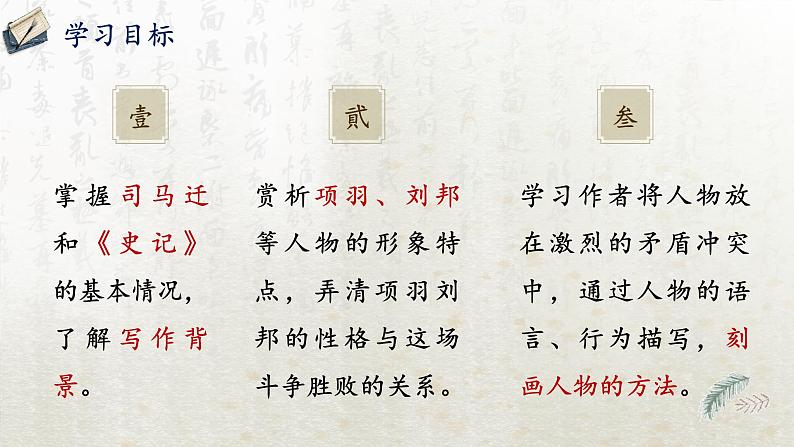 学习目标
壹
掌握司马迁
和《史记》
的基本情况,
了解写作背
景。
貳
赏析项羽、刘邦
等人物的形象特
点，弄清项羽刘
邦的性格与这场
斗争胜败的关系。
叁
学习作者将人物放
在激烈的矛盾冲突
中，通过人物的语
言、行为描写，刻
画人物的方法。